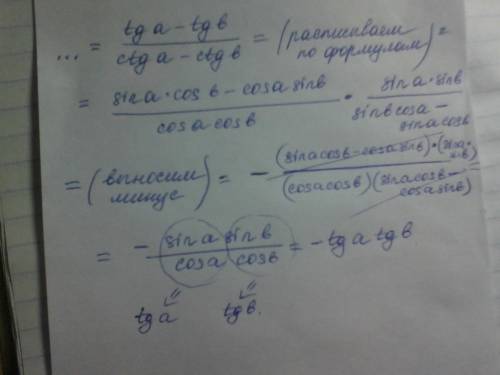 ... = (tg a - tg b) / (ctg a - ctg b) = (расписываем по формулам) =
= (sin a · cos b - cos a sin b) / (cos a cos b) · (sin a · sin b) / (sin b cos a - sin a cos b)
= (выносим минус) = - ((sin a cos b - cos a sin b) · (sin a · sin b)) / ((cos a cos b)(sin a cos b - cos a sin b)) =
= - (sin a sin b) / (cos a cos b) = - tg a tg b
tg a tg b.